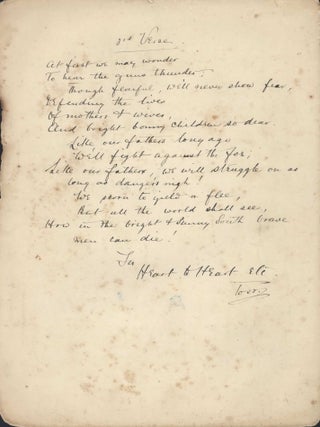 3rd Verse.
At first we may wonder
To hear the guns thunder.
Though fearful, we'll never show fear,
Defending the lives
Of mothers & wives,
And bright bonny children so dear.
Like our fathers long ago
We'll fight against the foe,
Like our fathers, we will struggle on as
long as danger's nigh!
We scorn to yield or flee,
But all the world shall see,
How in the bright & sunny South brave
men can die!
For
Heart to Heart etc.